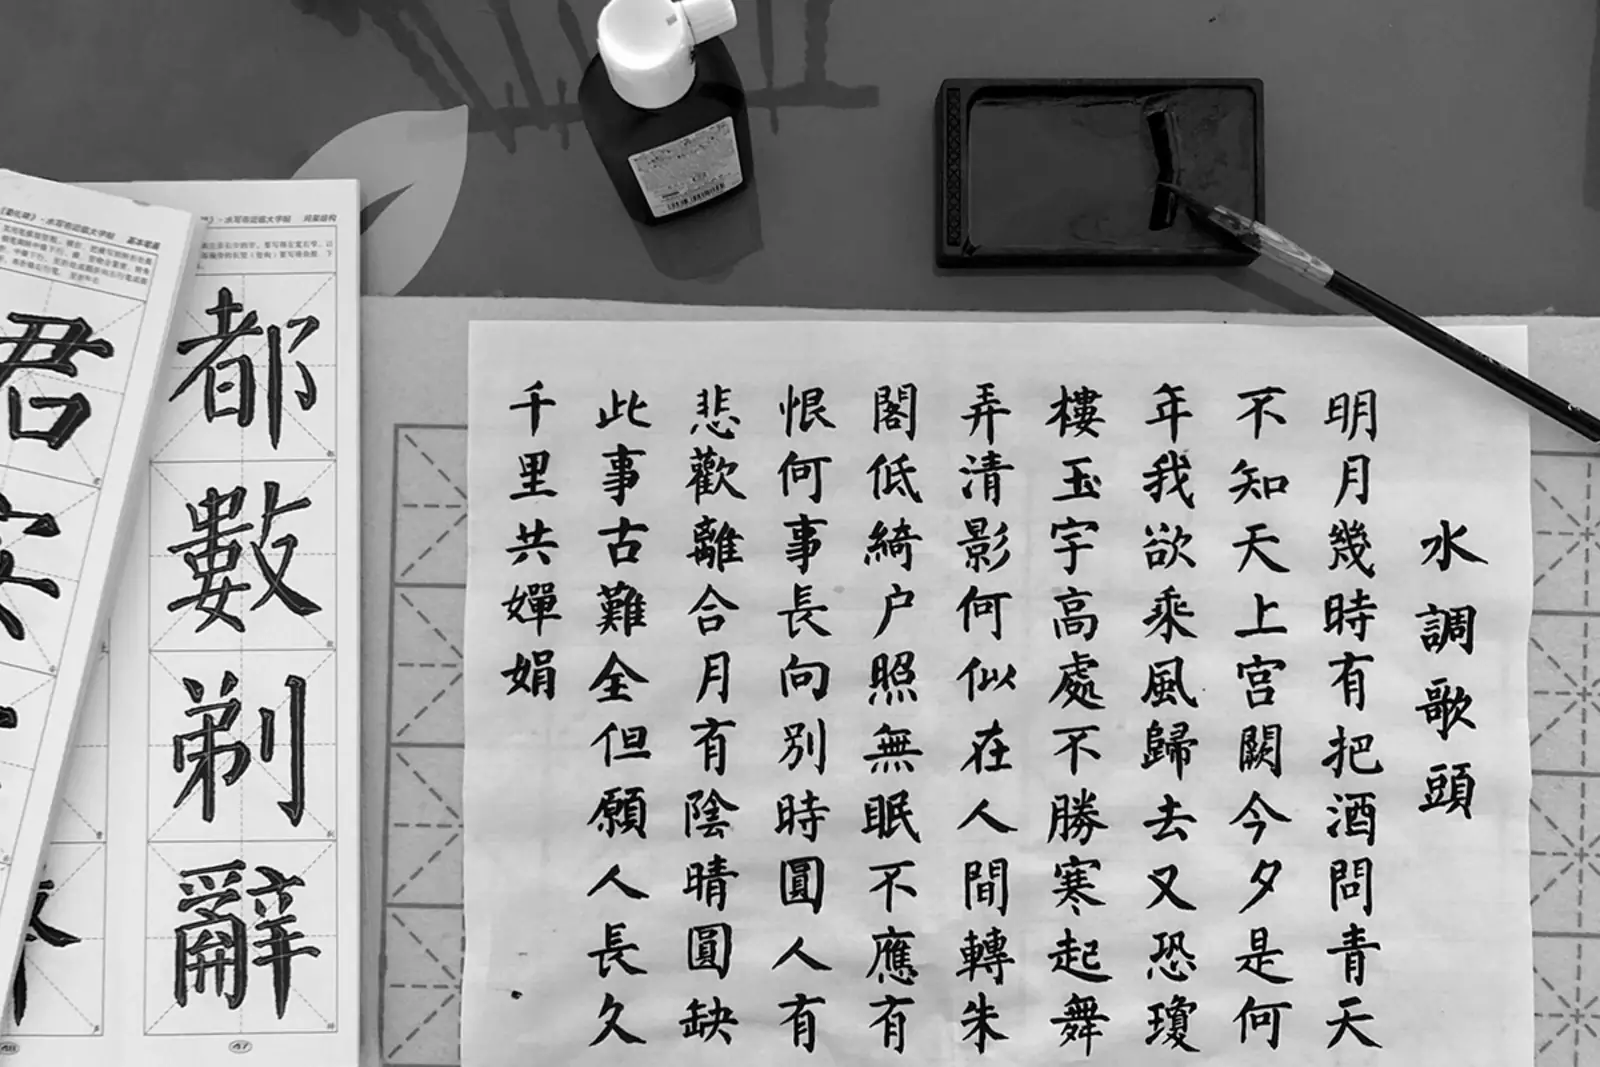 水調歌頭
明月幾時有把酒問青天
不知天上宮闕今夕是何
年我欲乘風歸去又恐瓊
樓玉宇高處不勝寒起舞
弄清影何似在人間轉朱
閣低綺户照無眠不應有
恨何事長向別時圓人有
悲歡離合月有陰晴圓缺
此事古難全但願人長久
千里共嬋娟
水写布近临大字帖 间架结构
都
數
剃
辭
47
水写布近临大字帖 基本笔画
君
48